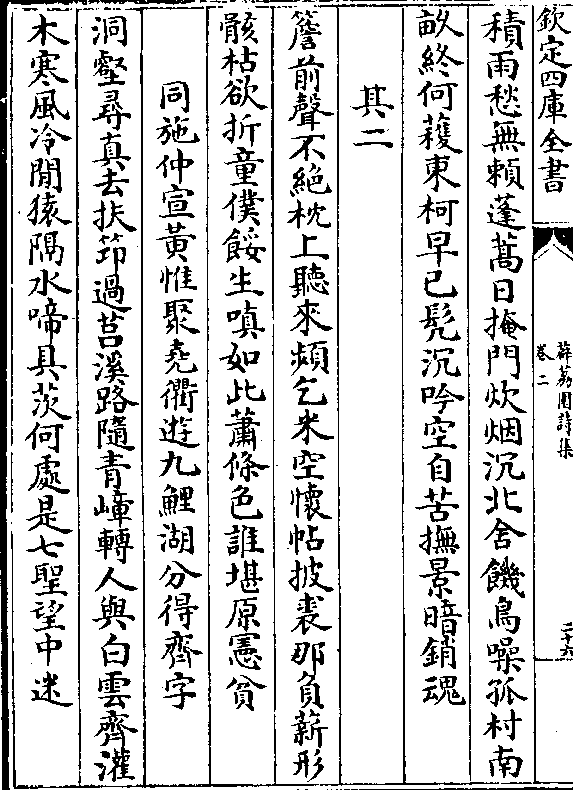 欽定四庫全書
薜荔園詩集
卷二
二十六
積雨愁無賴蓬蒿日掩門炊烟沉北舍饑鳥噪孤村南
畝終何穫東柯早已髠沉吟空自苦撫景暗銷魂
其二
簷前聲不絶枕上聽來頻乞米空懷帖披裘那負薪形
骸枯欲折童僕餒生嗔如此蕭條色誰堪原憲貧
同施仲宣黄惟聚堯衢遊九鯉湖分得齊字
洞壑尋真去扶筇過莒溪路隨青嶂轉人與白雲齊灌
木寒風冷閒猿隔水啼具茨何處是七聖望中迷